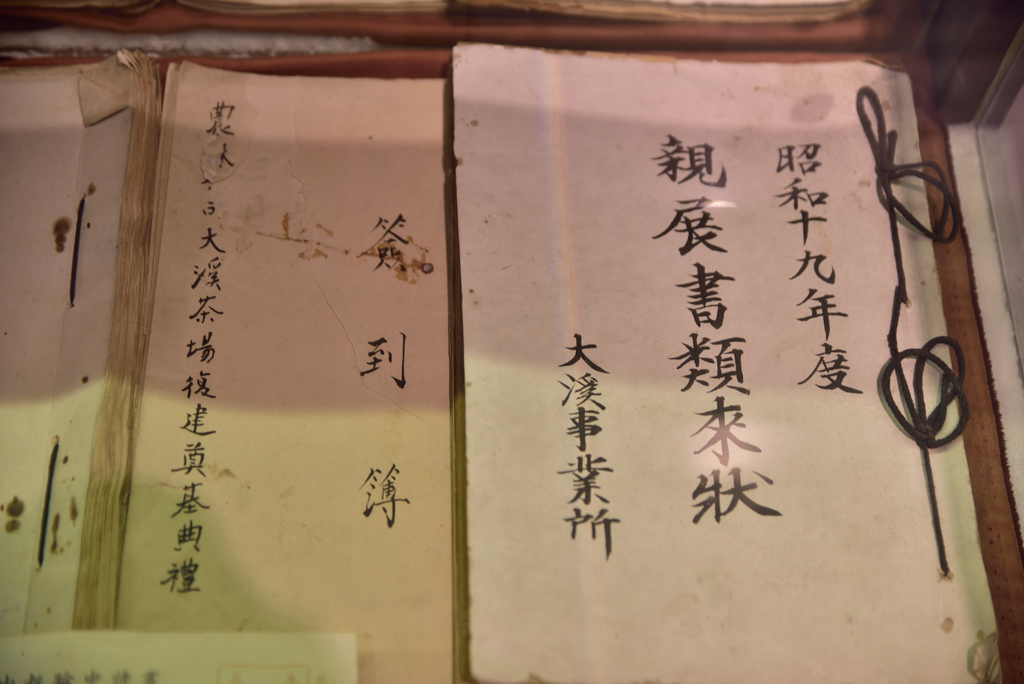 昭和十九年度
親展書類來狀
大溪事業所
簽到簿
農林公司大溪茶場復建奠基典禮